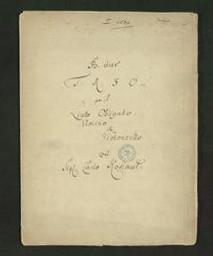 B. dur
TRIO
per il
Liuto Obligato
Violino
&
Violoncello
Del
Sigl. Carlo Kohaut.